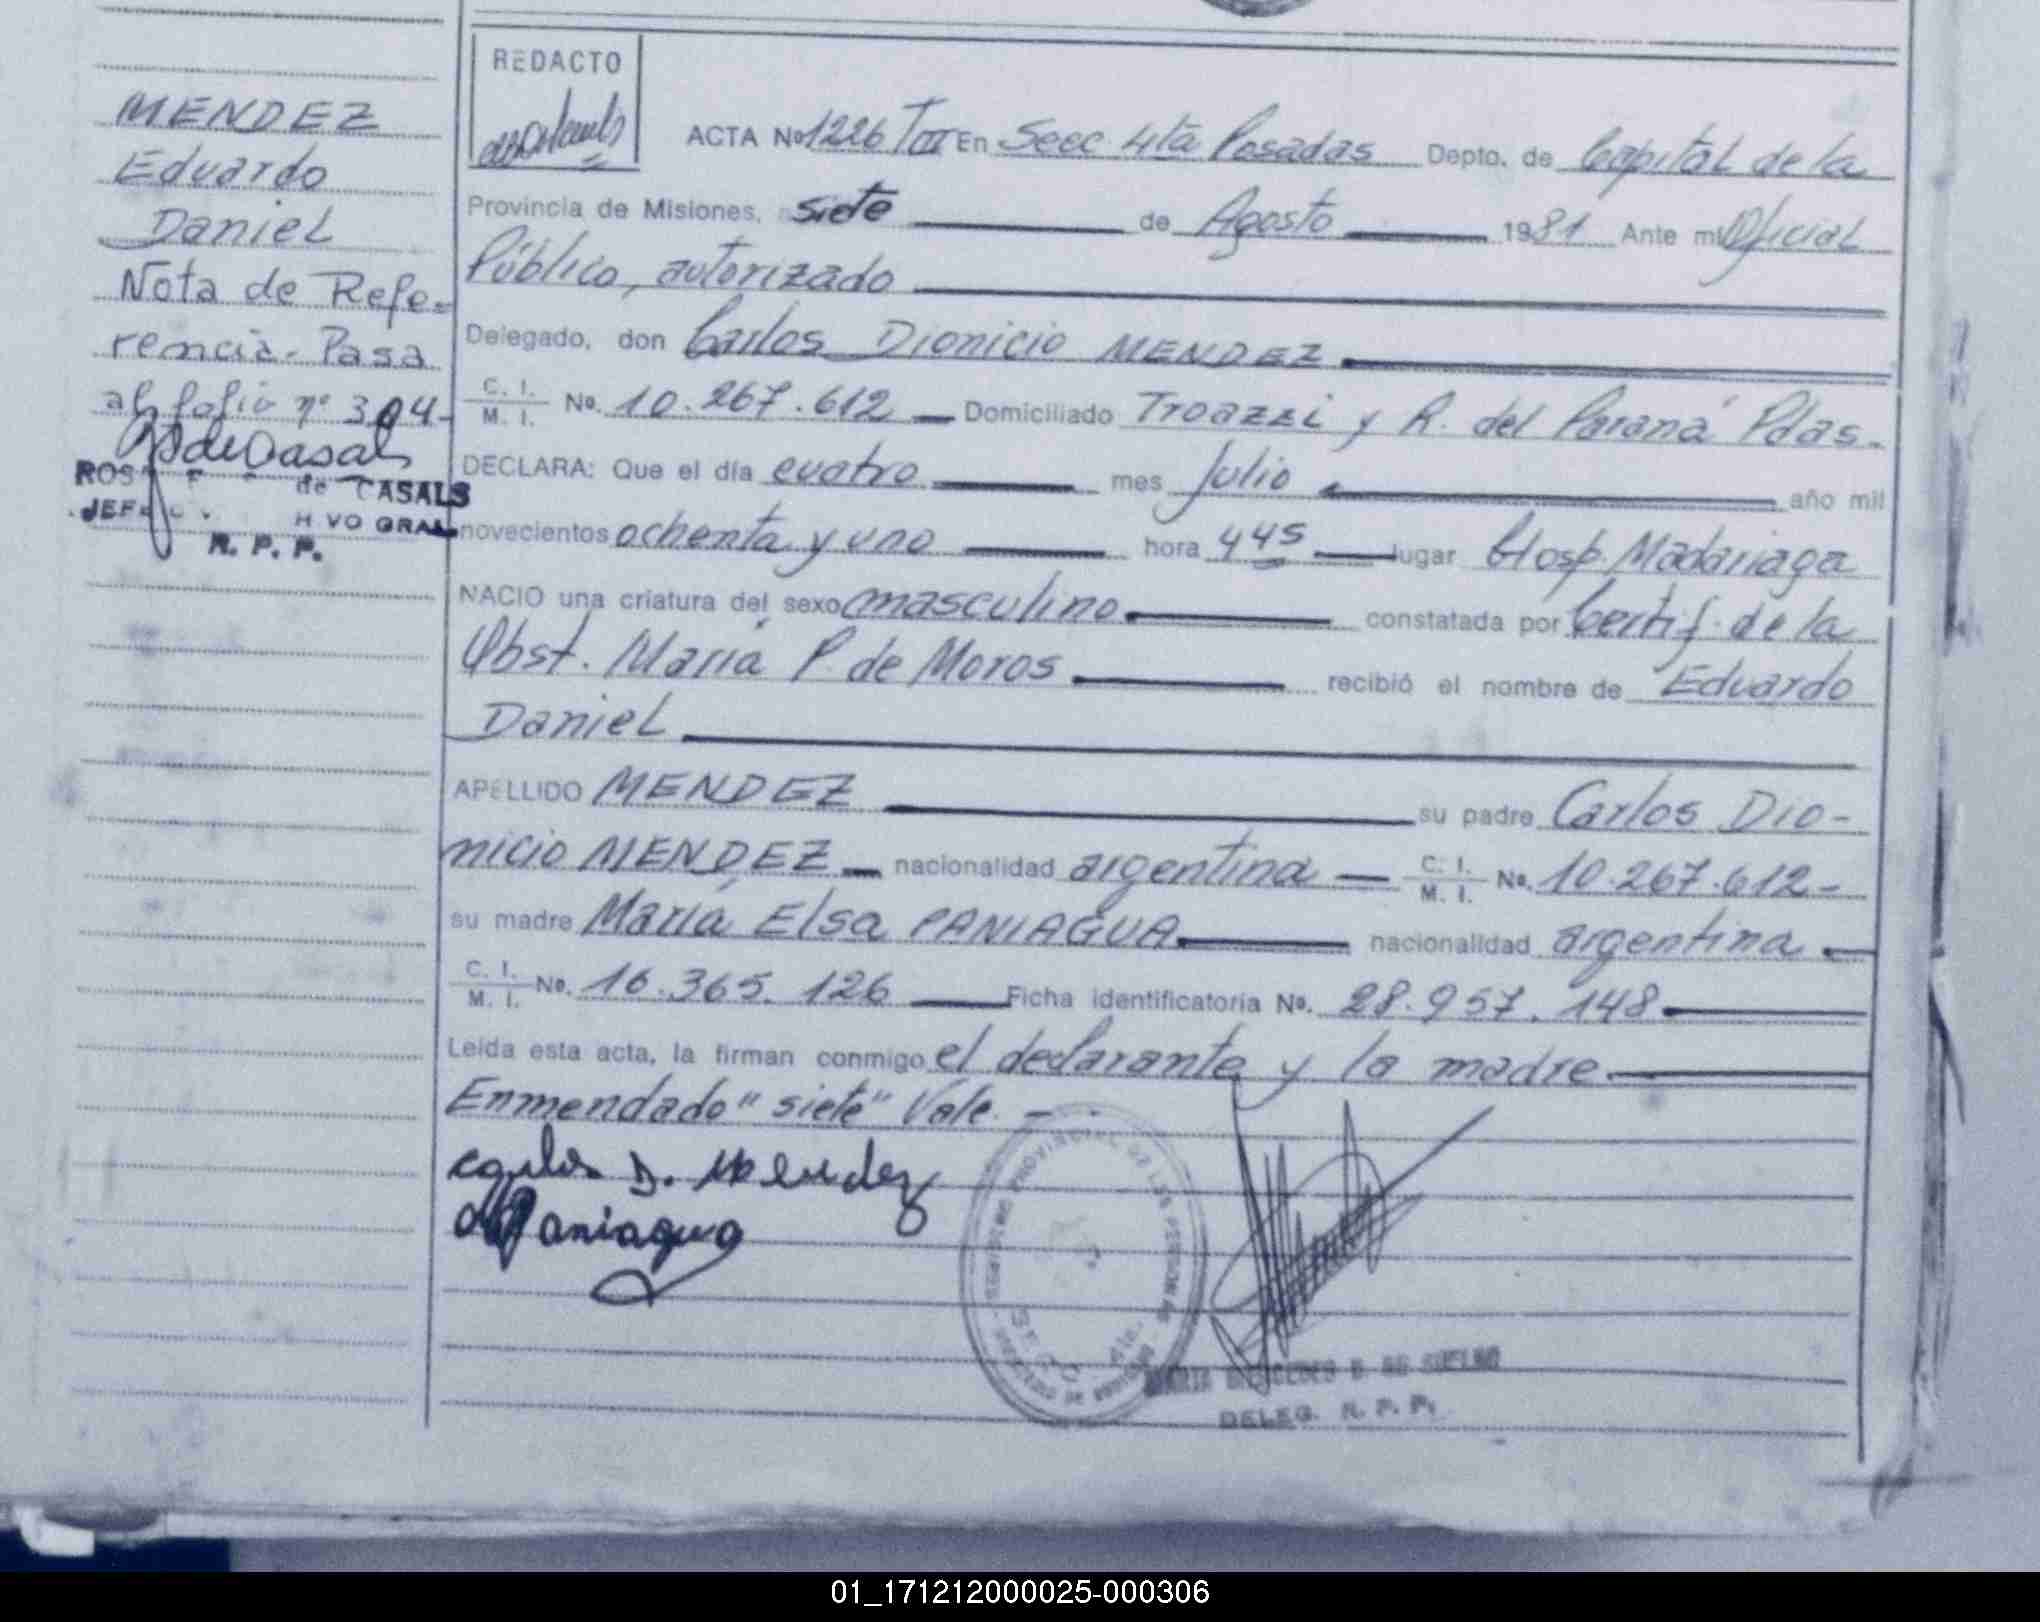 MENDEZ
Eduardo
Daniel
Nota de Refe=
rencia- Pasa
al folio nº 304-
de CASALS
R. P. P.
REDACTO
ACTA Nº 1226 TIII En Secc. 4ta Posadas Depto. de Capital de la
Provincia de Misiones, a siete de Agosto 1981 Ante mi Oficial
Público, autorizado
Delegado, don Carlos Dionicio MENDEZ
C. I.
M. I. Nº. 10.267.612 Domiciliado Troazzi y R. del Paraná Pdas.
DECLARA: Que el día cuatro mes Julio año mil
novecientos ochenta y uno hora 445 lugar Hosp. Madariaga
NACIO una criatura del sexo masculino constatada por Certif. de la
Obst. María P. de Moros recibió el nombre de Eduardo
Daniel
APELLIDO MENDEZ su padre Carlos Dio-
nicio MENDEZ nacionalidad argentina C. I.
M. I. Nº. 10.267.612-
su madre María Elsa PANIAGUA nacionalidad argentina
C. I.
M. I. Nº. 16.365.126 Ficha identificatoria Nº. 28.957.148
Leída esta acta, la firman conmigo el declarante y la madre
Enmendado "siete" Vale. -
Carlos D. Mendez
Paniagua
DELEG. R. P. P.
01_171212000025-000306